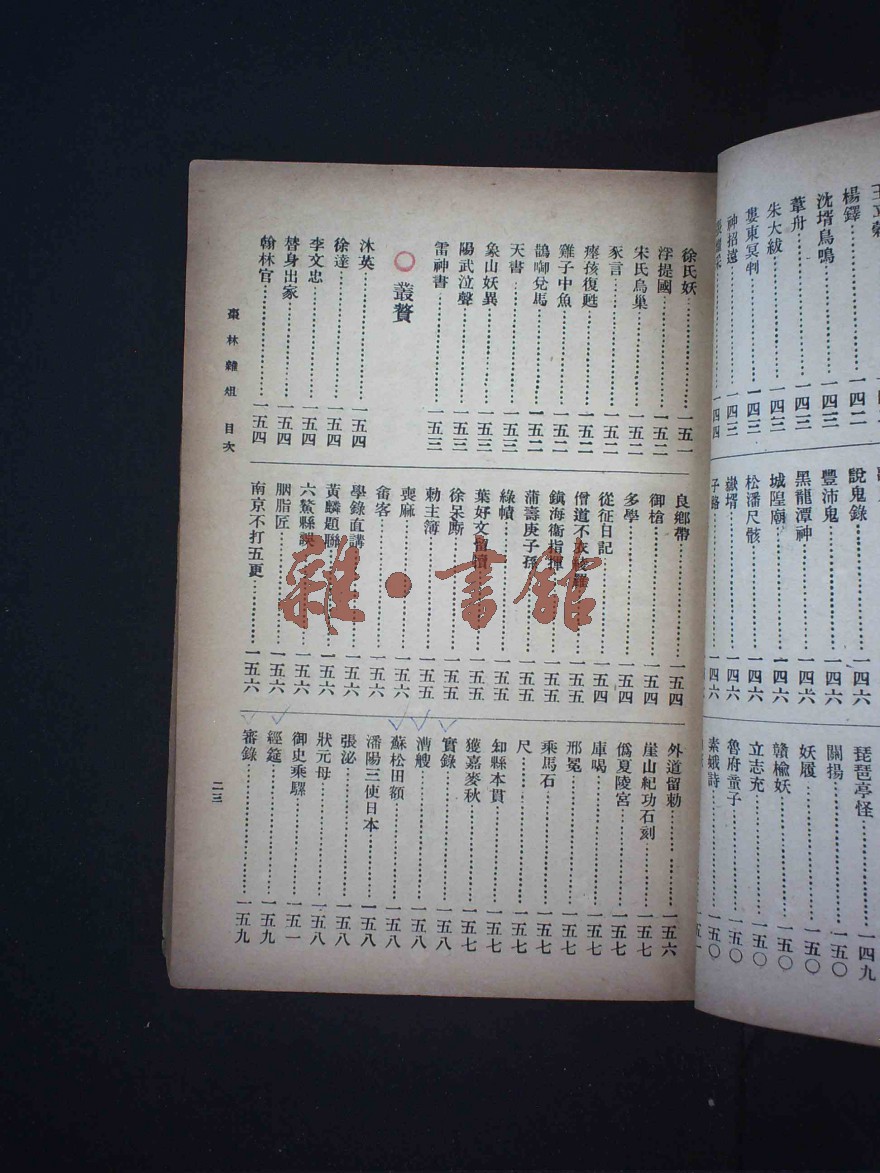 楊鐸……一四二
沈壻鳥鳴……一四三
葦舟……一四三
朱大紱……一四三
婁東冥判……一四三
神招遠……一四三
說鬼錄……一四六
豐沛鬼……一四六
黑龍潭神……一四六
城隍廟……一四六
松潘尺骸……一四六
嶽壻……一四六
琵琶亭怪……一四九
關揚……一五〇
妖履……一五〇
贛楡妖……一五〇
立志充……一五〇
魯府童子……一五〇
素娥詩……一五〇
徐氏妖……一五一
浮提國……一五二
宋氏鳥巢……一五二
豕言……一五二
瘞孩復甦……一五二
雞子中魚……一五二
鵲啣兌馬……一五二
天書……一五三
象山妖異……一五三
陽武泣聲……一五三
雷神書……一五三
叢贅
沐英……一五四
徐達……一五四
李文忠……一五四
替身出家……一五四
翰林官……一五四
良鄉帶……一五四
御槍……一五四
多學……一五四
從征日記……一五四
僧道不衣綾羅……一五五
鎮海衞指揮……一五五
蒲壽庚子孫……一五五
綠幘……一五五
葉好文留犢……一五五
徐呆廝……一五五
勅主簿……一五五
喪麻……一五六
畲客……一五六
學錄直講……一五六
黃麟題聯……一五六
六鰲縣誤……一五六
胭脂匠……一五六
南京不打五更……一五六
外道留勅……一五六
崖山紀功石刻……一五七
僞夏陵宮……一五七
庫喝……一五七
邢冤……一五七
乘馬石……一五七
尺……一五七
知縣本貫……一五七
獲嘉麥秋……一五七
實錄……一五八
漕艘……一五八
蘇松田額……一五八
潘陽三使日本……一五八
張泌……一五八
狀元母……一五八
御史乘騾……一五一
經筵……一五九
審錄……一五九
棗林雜俎 目次
二三
雜·書館